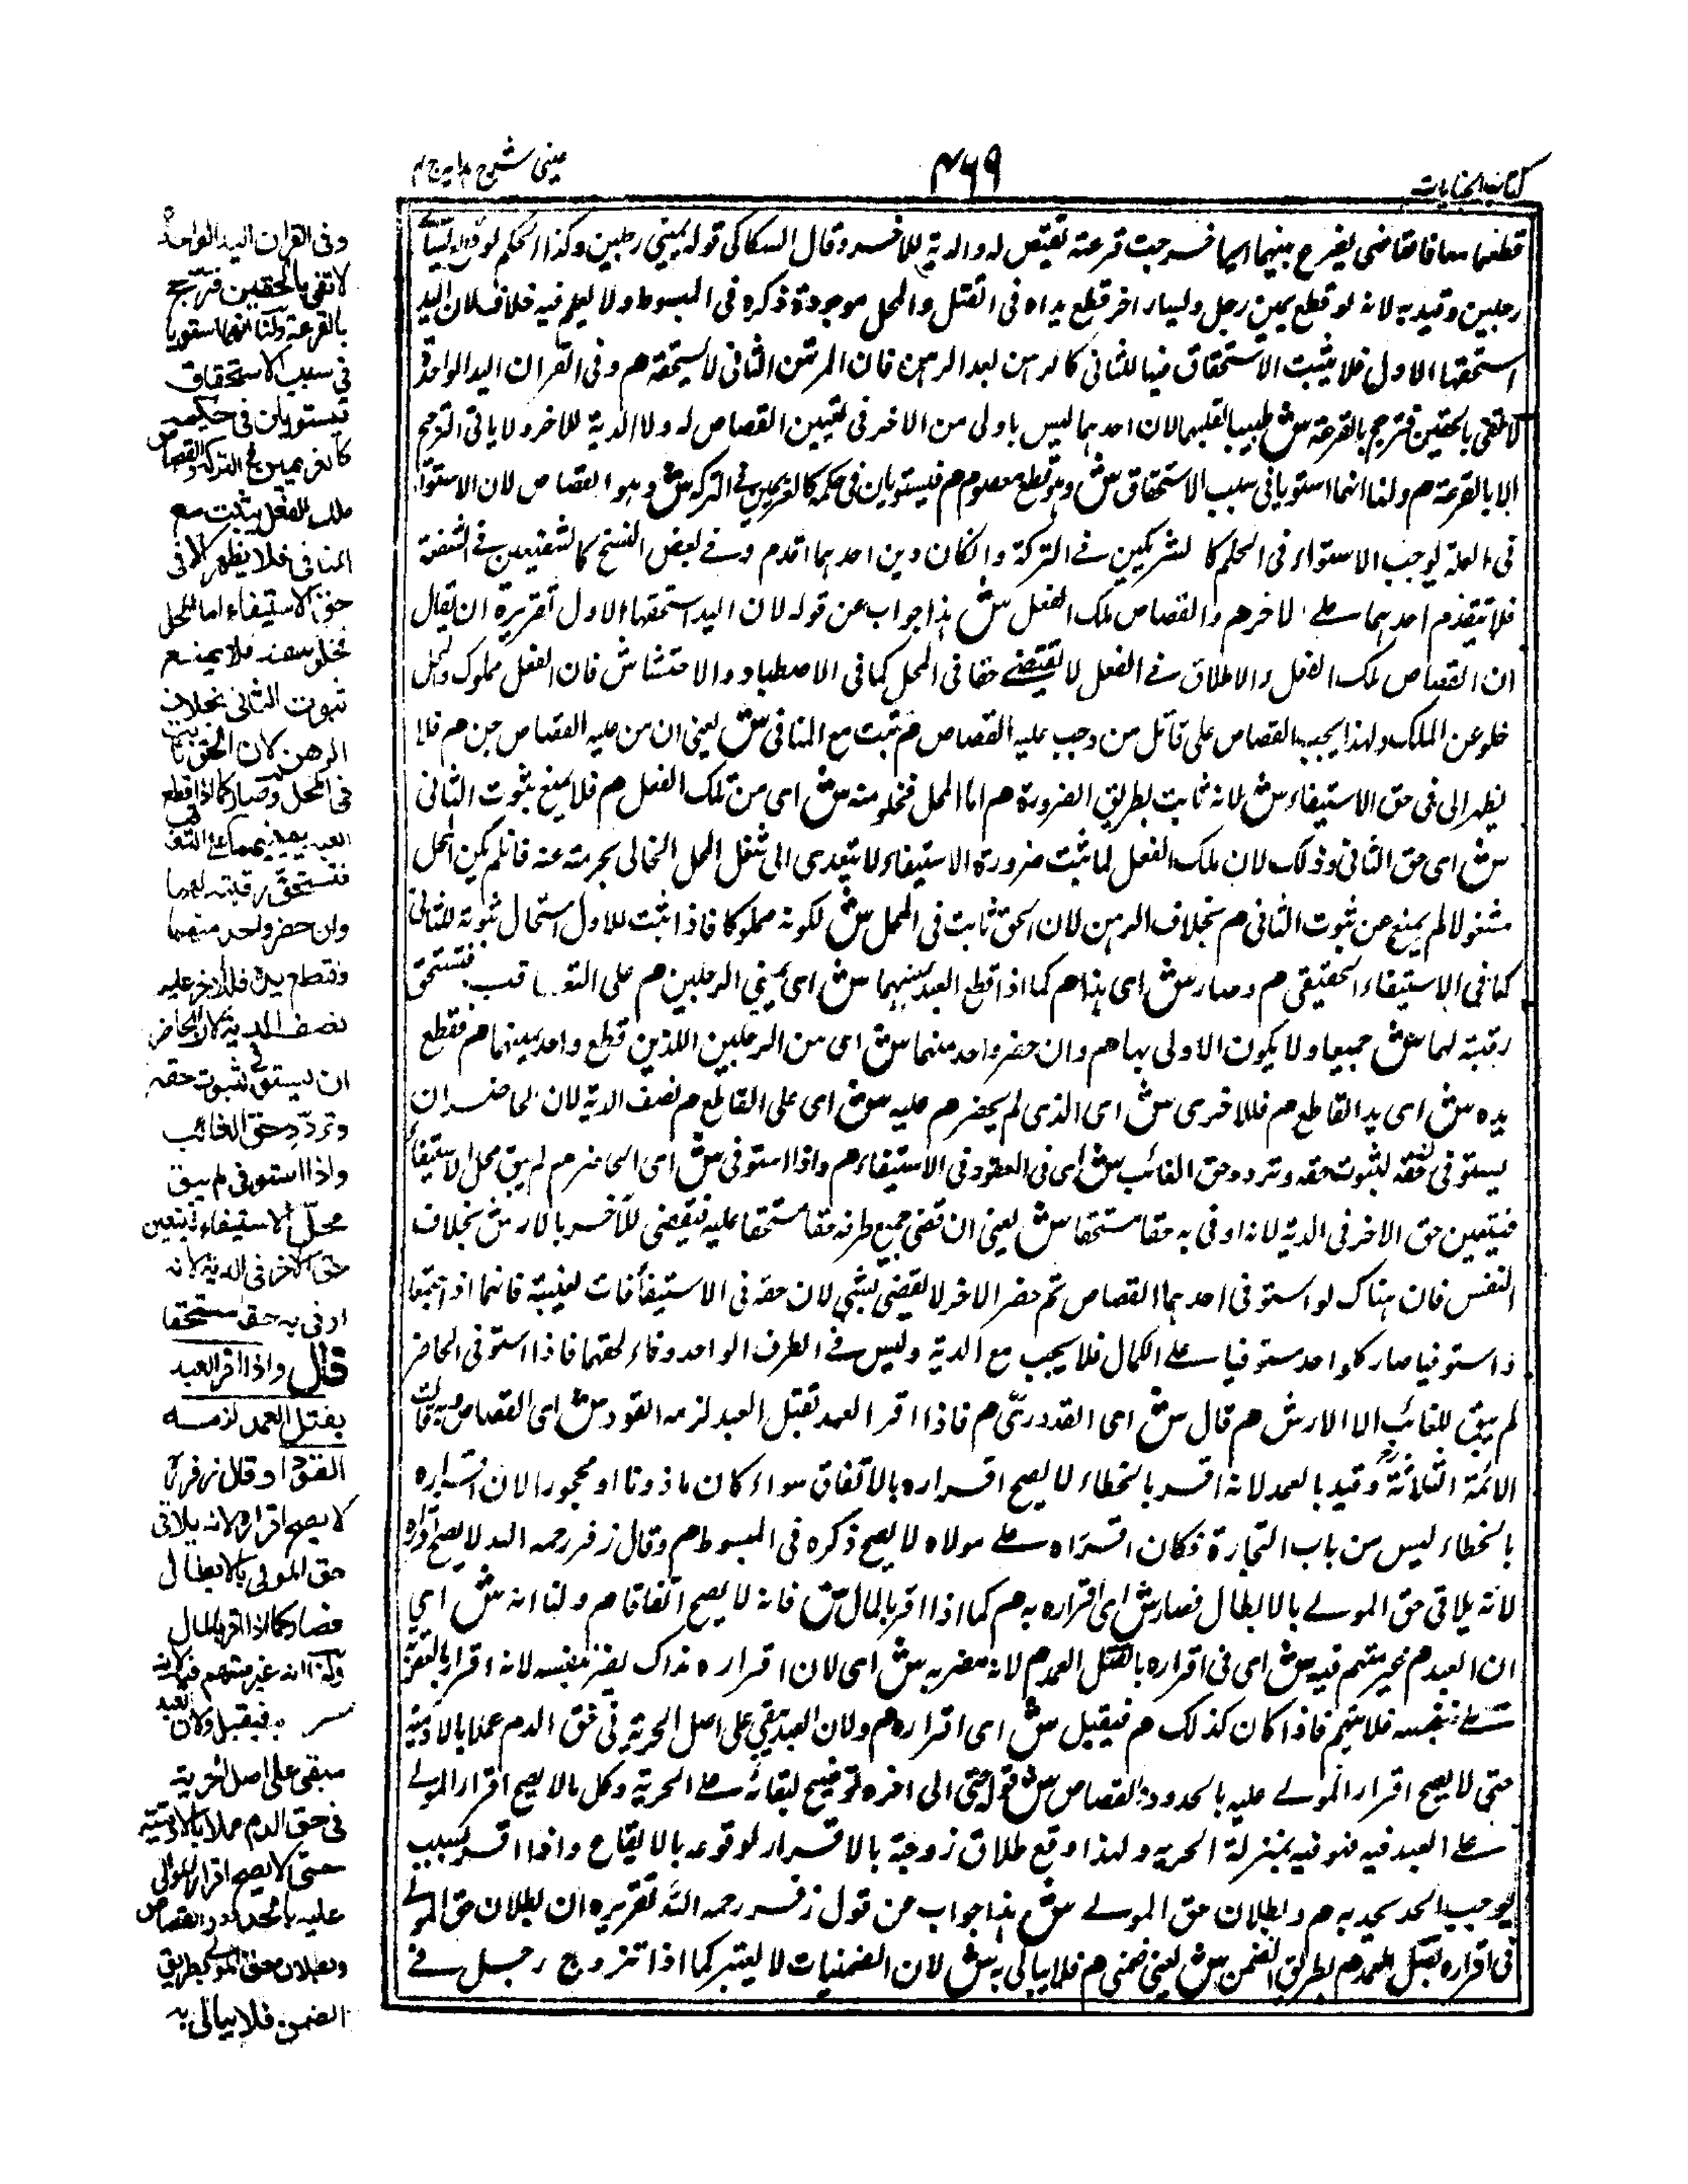 كتاب الجنايات
۴۶۹
عيني شرح هدايه ج ۴
قطعها معا فالقاضي يقرع بينهما ايهما خرجت قرعته يقتص له والدية للاخر وقال السكاكي قوله يميني رجلين وكذا الحكم لو قطع
رجلين وقيد به لانه لو قطع يمين رجل ويسار اخر قطع يداه في القتل والمحل موجودة ذكره في المبسوط ولا يعلم فيه خلاف لان اليد
استحقها الاول فلا يثبت الاستحقاق فيها للثاني كالرهن بعد الرهن فان المرتهن الثاني لا يستحقه م وفي القران اليد الواحدة
لا تفي بالحقين فترجح بالقرعة ش تطييبا لقلبهما لان احدهما ليس باولى من الاخر في تعيين القصاص له ولا الدية للاخر ولا ياتي الترجيح
الا بالقرعة م ولنا انهما استويا في سبب الاستحقاق ش وهو قطع معصوم م فيستويان في حكمه كالغريمين في التركة ش وهو القصاص لان الاستواء
في العلة يوجب الاستواء في الحكم كالشريكين في التركة وان كان دين احدهما اقدم وفي بعض النسخ كالشفيعين في الشفعة
فلا يتقدم احدهما على الاخر م والقصاص ملك الفعل ش هذا جواب عن قوله لان اليد استحقها الاول تقريره ان يقال
ان القصاص ملك الفعل والاطلاق في الفعل لا يقتضي حقا في المحل كما في الاصطياد والاحتشاش فان الفعل مملوك والمحل
خلو عن الملك ولهذا يجب القصاص على قاتل من وجب عليه القصاص م يثبت مع المنافي ش يعني ان من عليه القصاص حر م فلا
يظهر الا في حق الاستيفاء ش لانه ثابت بطريق الضرورة م اما المحل فخلو منه ش اي من ملك الفعل م فلا يمنع ثبوت الثاني
ش اي حق الثاني وذلك لان ملك الفعل لما ثبت ضرورة الاستيفاء لا يتعدى الى شغل المحل الخالي بحرمته عنه فاذا لم يكن المحل
مشغولا لم يمنع عن ثبوت الثاني م بخلاف الرهن لان الحق ثابت في المحل ش لكونه مملوكا فاذا ثبت للاول استحال ثبوته للثاني
كما في الاستيفاء الحقيقي م وصار ش اي هذا م كما اذا قطع العبد يمينيهما ش اي يميني الرجلين م على التعاقب فتستحق
رقبته لهما ش جميعا ولا يكون الاولى بها م وان حضر واحد منهما ش اي من الرجلين اللذين قطع واحد يمينهما م فقطع
يده ش اي يد القاطع م فللاخر ش اي الذي لم يحضر م عليه ش اي على القاطع م نصف الدية لان الحاضر ان
يستوفي حقه لثبوت حقه وتردد حق الغائب ش اي في العقود في الاستيفاء م واذا استوفى ش اي الحاضر م لم يبق محل الاستيفاء
فيتعين حق الاخر في الدية لانه اوفى به حقا مستحقا ش يعني ان قضى جميع طرفه حقا مستحقا عليه فيقضى للاخر بالارش بخلاف
النفس فان هناك لو استوفى احدهما القصاص ثم حضر الاخر لا يقضى بشيء لان حقه في الاستيفاء فات لغيبته فانهما اذا اجتمعا
واستوفيا صار كل واحد مستوفيا على الكمال فلا يجب مع الدية وليس في الطرف الواحد وفاء لحقهما فاذا استوفى الحاضر
لم يبق للغائب الا الارش م قال ش اي القدوري م فاذا اقر العبد بقتل العمد لزمه القود ش اي القصاص وبه قالت
الائمة الثلاثة وقيد بالعمد لانه اقر بالخطاء لا يصح اقراره بالاتفاق سواء كان ماذونا او محجورا لان اقراره
بالخطاء ليس من باب التجارة فكان اقراره على مولاه لا يصح ذكره في المبسوط م وقال زفر رحمه الله لا يصح اقراره
لانه يلاقي حق المولى بالابطال فصار ش اي اقراره به م كما اذا اقر بالمال ش فانه لا يصح اتفاقا م ولنا انه ش اي
ان العبد م غير متهم فيه ش اي في اقراره بالقتل العمد م لانه مضر به ش اي لان اقراره بذاك يضر بنفسه لانه اقرار بالعقوبة
على نفسه فلا يتهم فاذا كان كذلك م فيقبل ش اي اقراره م ولان العبد يبقى على اصل الحرية في حق الدم عملا بالادمية
حتى لا يصح اقرار المولى عليه بالحدود والقصاص ش قوله حتى الى اخره توضيح لبقائه على الحرية وكل ما لا يصح اقرار المولى
على العبد فيه فهو فيه بمنزلة الحر به ولهذا وقع طلاق زوجته بالاقرار لوقوعه بالايقاع واذا اقر بسبب
يوجب الحد يحد به م وبطلان حق المولى ش هذا جواب عن قول زفر رحمه الله تقريره ان بطلان حق المولى
في اقراره بقتل العمد م بطريق الضمن ش يعني ضمني م فلا يبالى به ش لان الضمنيات لا يعتبر كما اذا تزوج رجل في
وفي القران اليد الواحدة
لا تفي بالحقين فترجح
بالقرعة ولنا انهما استويا
في سبب الاستحقاق
فيستويان في حكمه
كالغريمين في التركة والقصاص
ملك الفعل يثبت مع
المنافي فلا يظهر الا في
حق الاستيفاء اما المحل
فخلو منه فلا يمنع
ثبوت الثاني بخلاف
الرهن لان الحق ثابت
في المحل وصار كما اذا قطع
العبد يمينيهما على التعاقب
فتستحق رقبته لهما
وان حضر واحد منهما
فقطع يده فللاخر عليه
نصف الدية لان للحاضر
ان يستوفي لثبوت حقه
وتردد حق الغائب
واذا استوفى لم يبق
محل الاستيفاء فيتعين
حق الاخر في الدية لانه
اوفى به حقا مستحقا
قال واذا اقر العبد
بقتل العمد لزمه
القود وقال زفر
لا يصح اقراره لانه يلاقي
حق المولى بالابطال
فصار كما اذا اقر بالمال
ولنا انه غير متهم فيه لانه
مضر به فيقبل ولان العبد
مبقي على اصل الحرية
في حق الدم عملا بالادمية
حتى لا يصح اقرار المولى
عليه بالحدود والقصاص
وبطلان حق المولى بطريق
الضمن فلا يبالى به